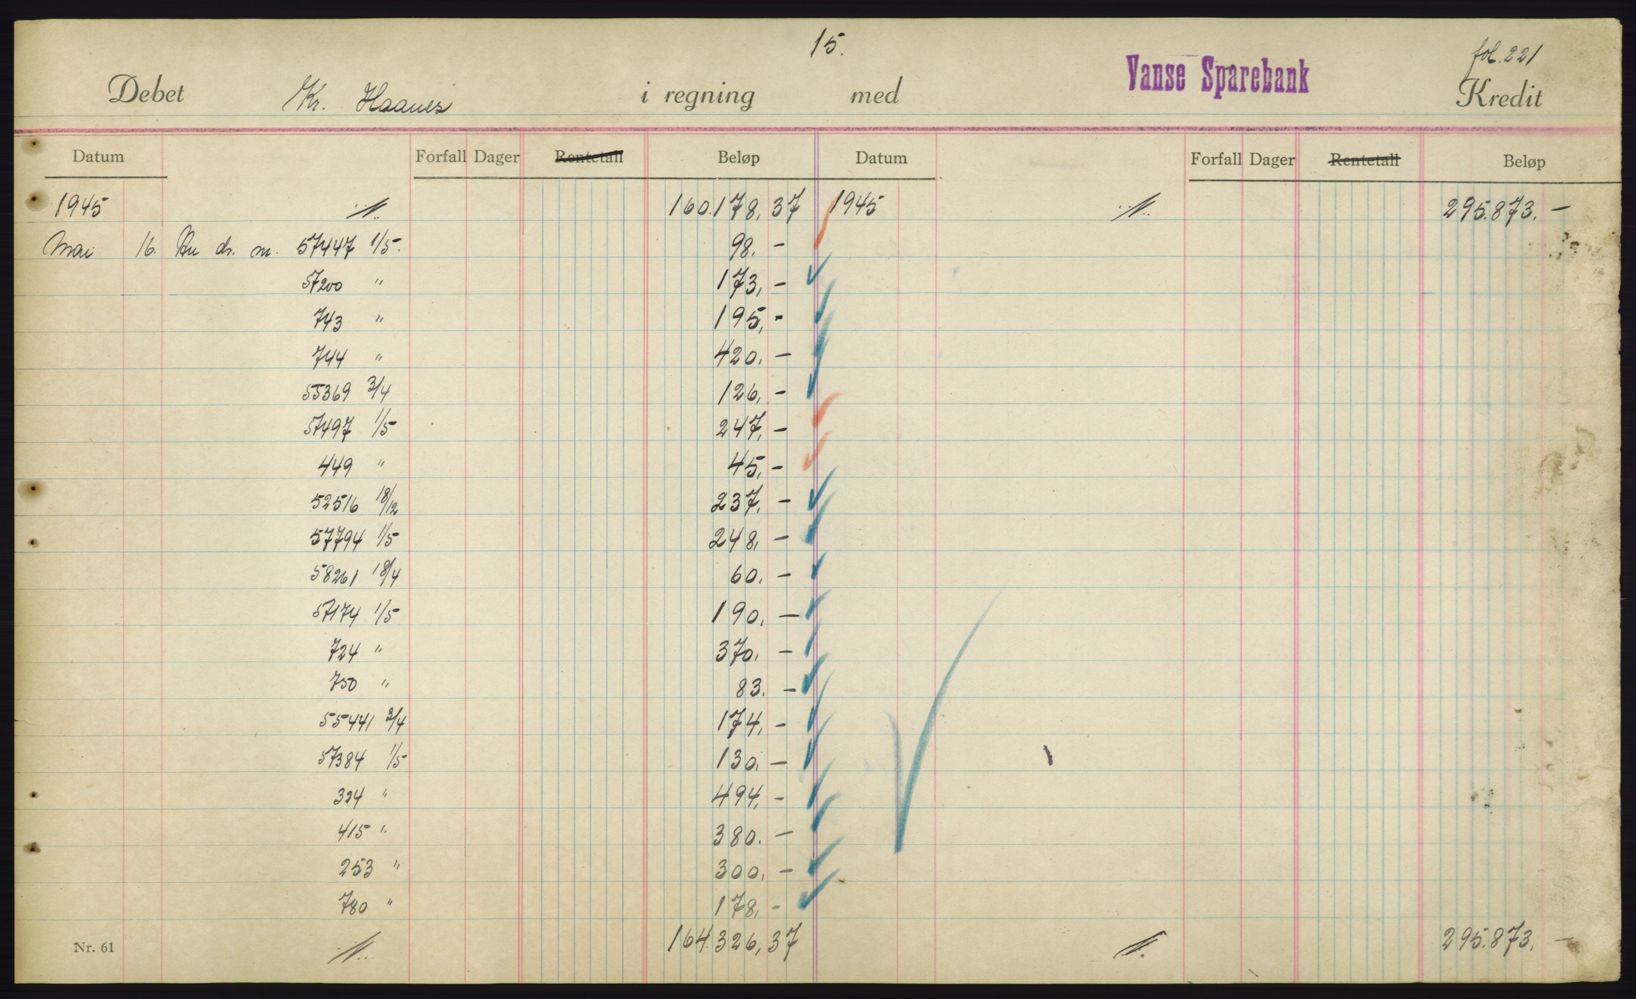 15.
fol. 221
Vanse Sparebank
Debet Kr. Haanes i regning med Kredit
Datum Forfall Dager Rentetall Beløp Datum Forfall Dager Rentetall Beløp
1945 160.178,37 1945 295.873,-
Mai 16. dr. m. 57447 1/5. 98.-
57200 " 173,-
743 " 195,-
744 " 420,-
55369 3/4 126,-
57497 1/5 247,-
449 " 45,-
52516 18/12 237,-
57794 1/5 248,-
58261 18/4 60,-
57174 1/5 190,-
724 " 370,-
750 " 83.-
55441 3/4 174,-
57384 1/5 130,-
324 " 494,-
415 " 380.-
253 " 300,-
780 " 178,-
Nr. 61 164.326,37 295.873,-